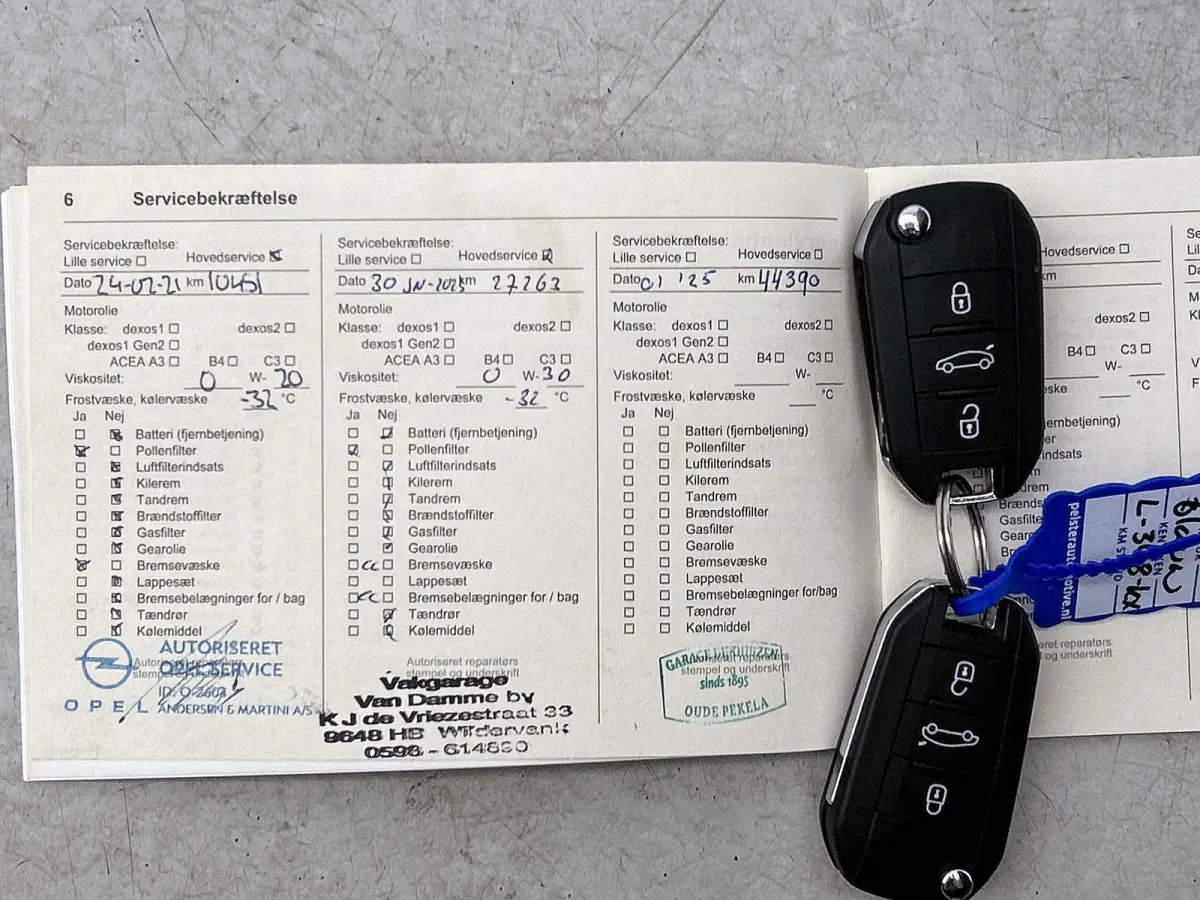 6 Servicebekræftelse
Servicebekræftelse:
Lille service Hovedservice
Dato 24-02-21 km
Motorolie
Klasse: dexos1 dexos2
dexos1 Gen2
ACEA A3 B4 C3
Viskositet: 0 W- 20
Frostvæske, kølervæske -32 °C
Ja Nej
Batteri (fjernbetjening)
Pollenfilter
Luftfilterindsats
Kilerem
Tandrem
Brændstoffilter
Gasfilter
Gearolie
Bremsevæske
Lappesæt
Bremsebelægninger for / bag
Tændrør
Kølemiddel
AUTORISERET
OPEL SERVICE
OPEL ANDERSEN & MARTINI A/S
Servicebekræftelse:
Lille service Hovedservice
Dato 30 km 27263
Motorolie
Klasse: dexos1 dexos2
dexos1 Gen2
ACEA A3 B4 C3
Viskositet: 0 W- 30
Frostvæske, kølervæske -32 °C
Ja Nej
Batteri (fjernbetjening)
Pollenfilter
Luftfilterindsats
Kilerem
Tandrem
Brændstoffilter
Gasfilter
Gearolie
Bremsevæske
Lappesæt
Bremsebelægninger for / bag
Tændrør
Kølemiddel
Autoriseret reparatørs
stempel og underskrift
Vakgarage
Van Damme bv
K J de Vriezestraat 33
9648 HB Wildervank
0598 - 614890
Servicebekræftelse:
Lille service Hovedservice
Dato 01 '25 km 44390
Motorolie
Klasse: dexos1 dexos2
dexos1 Gen2
ACEA A3 B4 C3
Viskositet: W-
Frostvæske, kølervæske °C
Ja Nej
Batteri (fjernbetjening)
Pollenfilter
Luftfilterindsats
Kilerem
Tandrem
Brændstoffilter
Gasfilter
Gearolie
Bremsevæske
Lappesæt
Bremsebelægninger for/bag
Tændrør
Kølemiddel
stempel og underskrift
GARAGE
sinds 1895
OUDE PEKELA
Hovedservice
km
dexos2
B4 C3
W-
°C